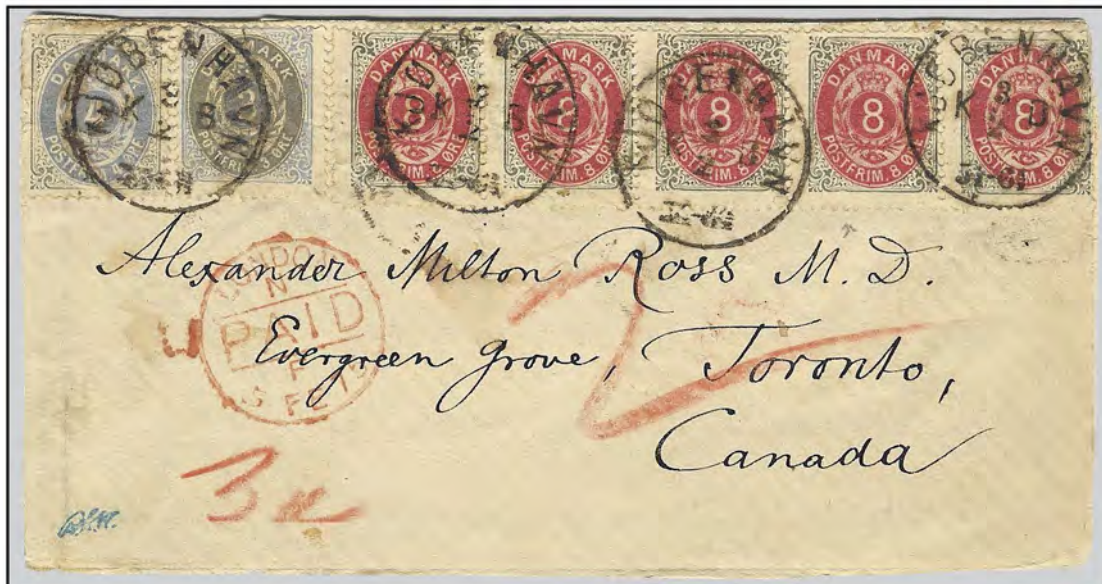 DANMARK POSTFRIM.
DANMARK POSTFRIM. ØRE
DANMARK 8 POSTFRIM. 8 ØRE
DANMARK 8 POSTFRIM. 8 ØRE
DANMARK 8 POSTFRIM. 8 ØRE
DANMARK 8 POSTFRIM. 8 ØRE
DANMARK 8 POSTFRIM. 8 ØRE
KJØBENHAVN K B
KJØBENHAVN K
KJØBENHAVN
KJØBENHAVN K
Alexander Milton Ross M. D.
Evergreen Grove, Toronto,
Canada
LONDON
PAID
2
3